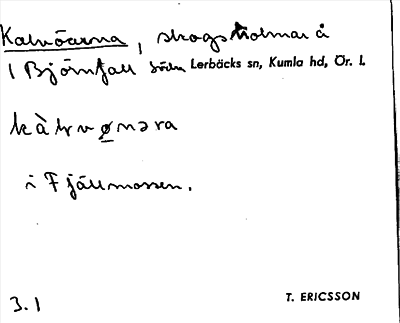 Kalvöarna, skogsholmar å
1 Björnfall södra Lerbäcks sn, Kumla hd, Ör. l.
kàlvønəra
i Fjällmossen.
3.1
T. ERICSSON